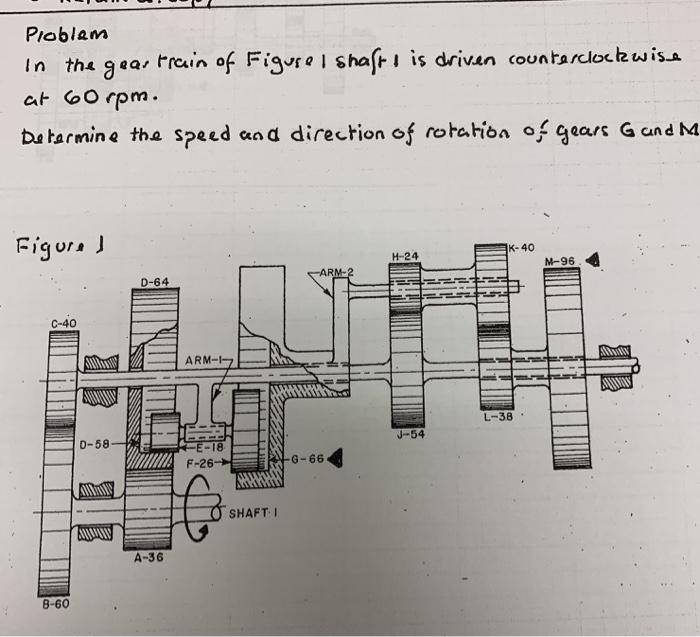 Problem
In the gear train of Figure 1 shaft 1 is driven counterclockwise
at 60 rpm.
Determine the speed and direction of rotation of gears G and M
Figure 1
K-40
H-24
M-96
ARM-2
D-64
C-40
ARM-1
D-58
E-18
L-38
J-54
F-26
G-66
SHAFT-1
A-36
B-60